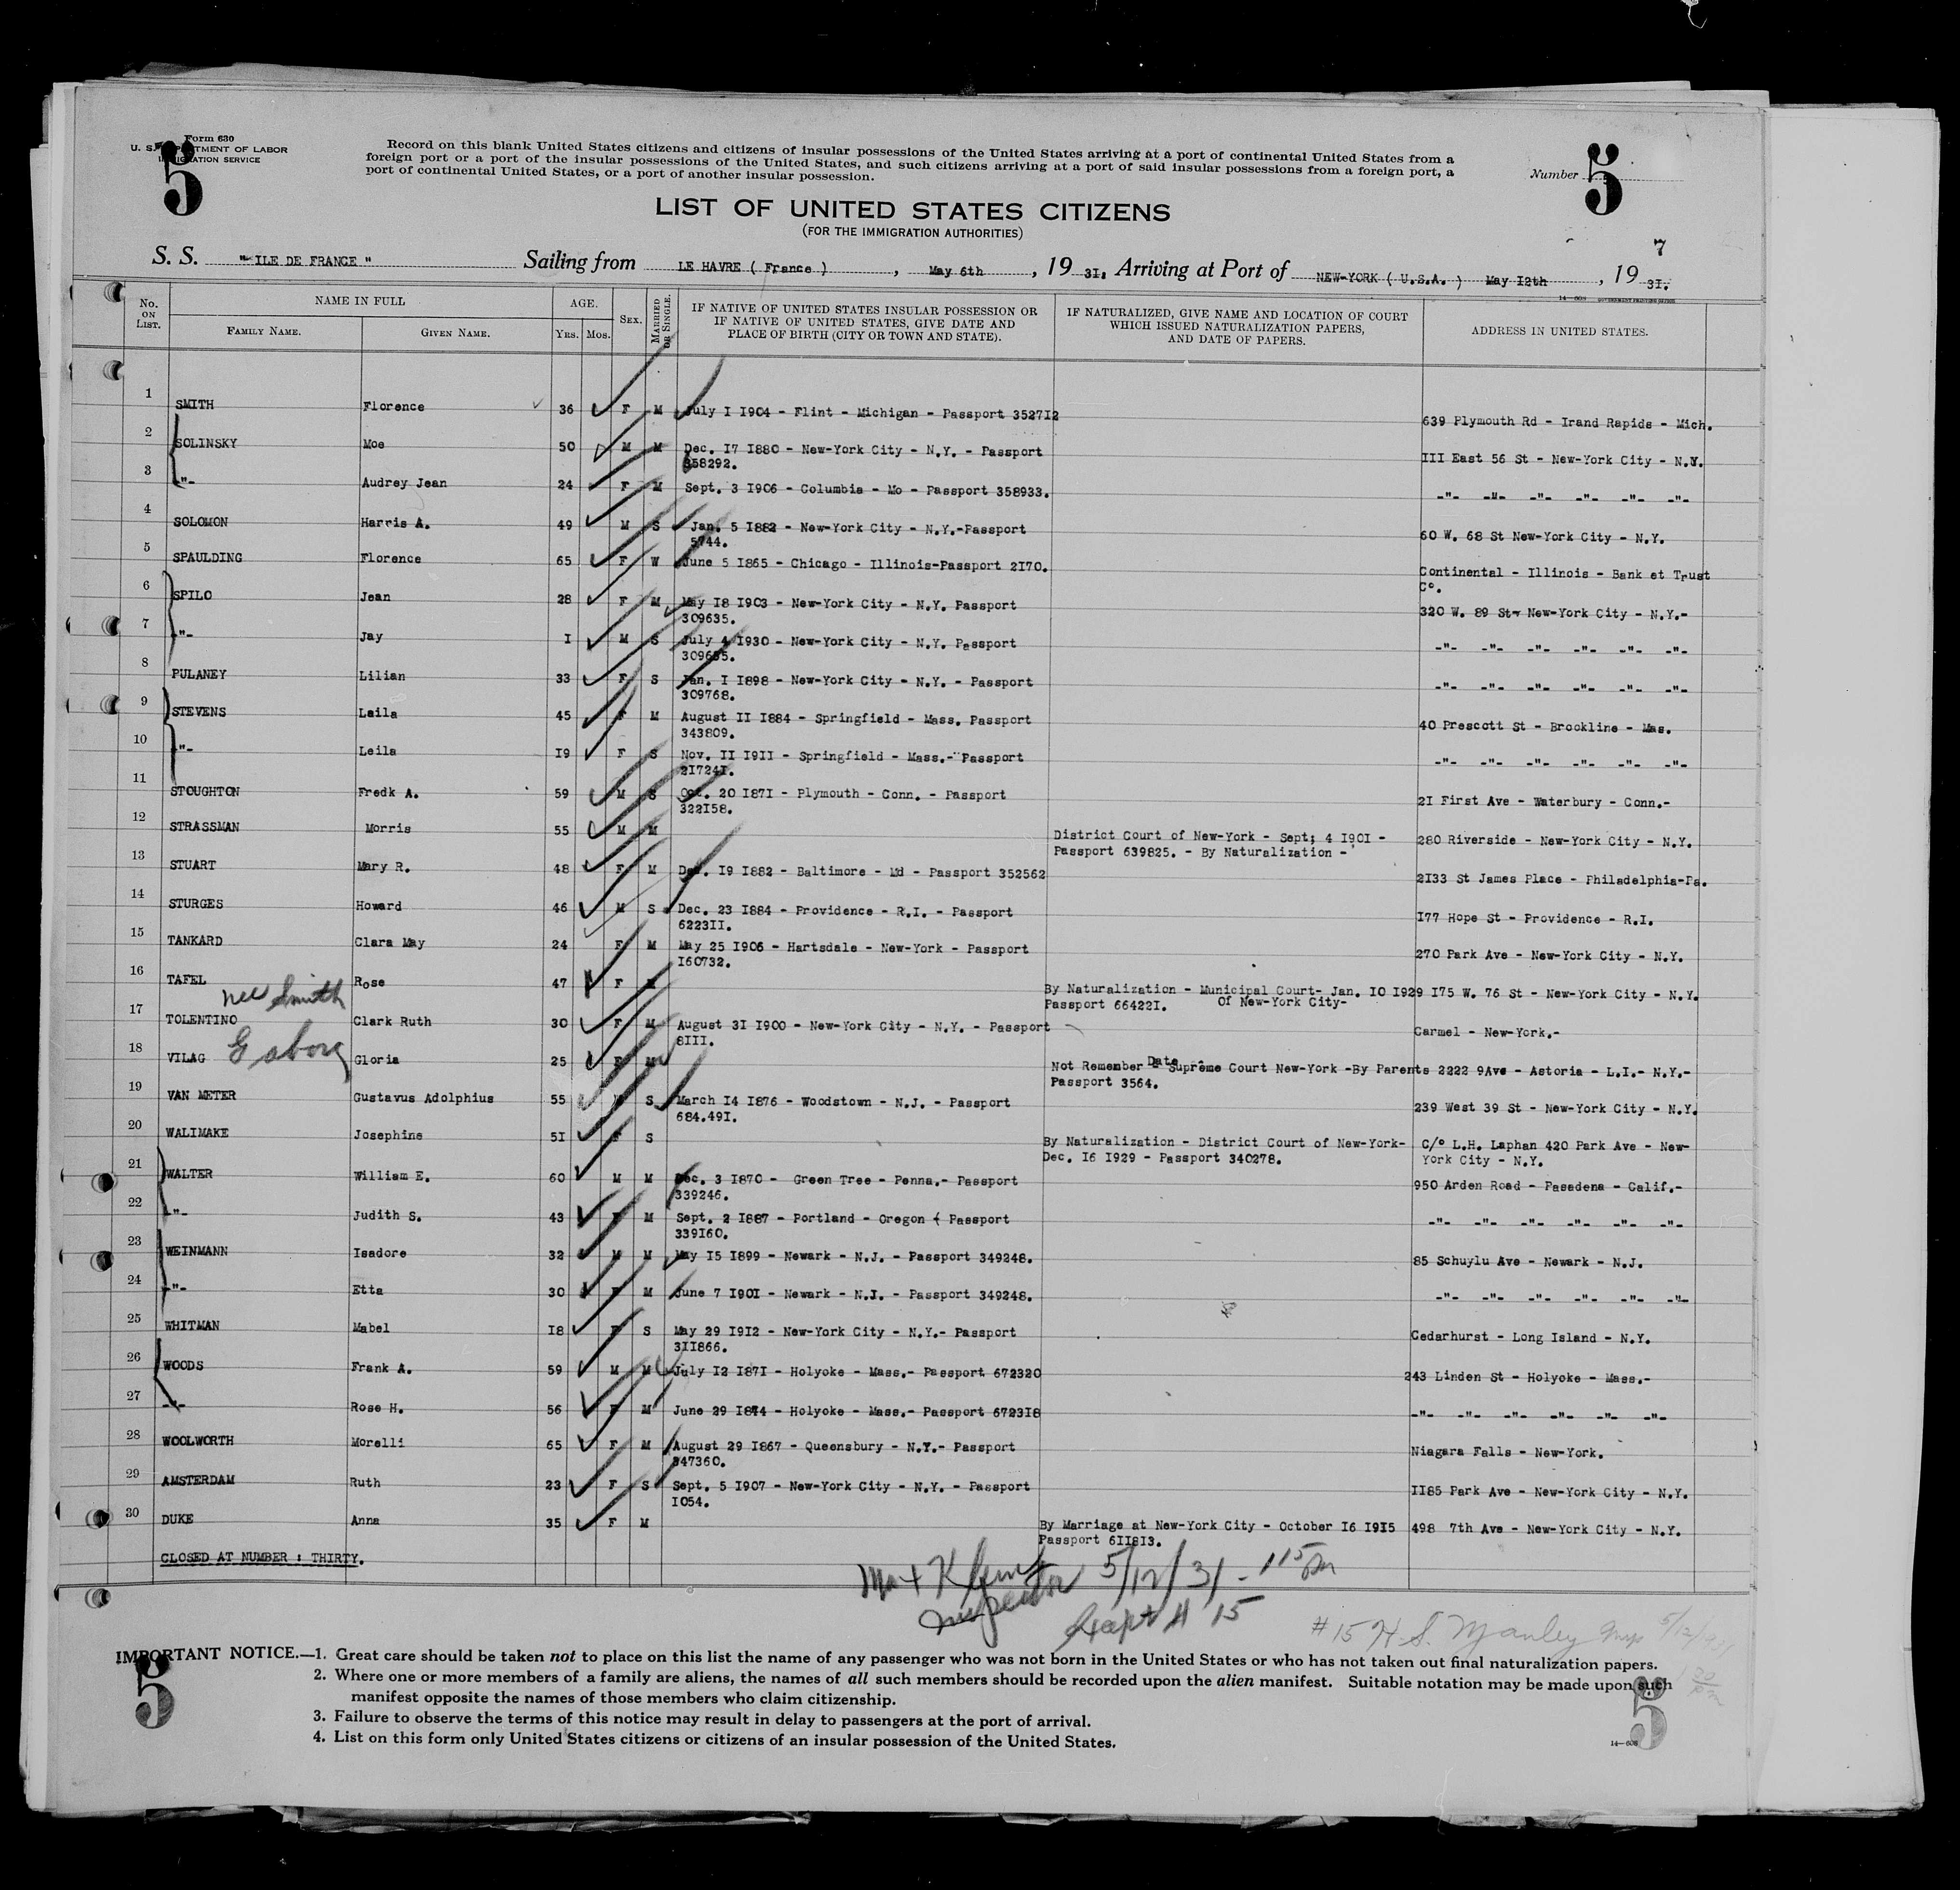 Form 630
U. S. DEPARTMENT OF LABOR
IMMIGRATION SERVICE
5
Record on this blank United States citizens and citizens of insular possessions of the United States arriving at a port of continental United States from a
foreign port or a port of the insular possessions of the United States, and such citizens arriving at a port of said insular possessions from a foreign port, a
port of continental United States, or a port of another insular possession.
Number 5
LIST OF UNITED STATES CITIZENS
(FOR THE IMMIGRATION AUTHORITIES)
7
S. S. " ILE DE FRANCE " Sailing from LE HAVRE ( France ) , May 6th , 19 3I. Arriving at Port of NEW-YORK ( U.S.A. ) May I2th , 19 3I.
No. ON LIST. NAME IN FULL FAMILY NAME. GIVEN NAME. AGE. YRS. MOS. SEX. MARRIED OR SINGLE. IF NATIVE OF UNITED STATES INSULAR POSSESSION OR IF NATIVE OF UNITED STATES, GIVE DATE AND PLACE OF BIRTH (CITY OR TOWN AND STATE). IF NATURALIZED, GIVE NAME AND LOCATION OF COURT WHICH ISSUED NATURALIZATION PAPERS, AND DATE OF PAPERS. ADDRESS IN UNITED STATES.
1 SMITH Florence 36 F M July I I904 - Flint - Michigan - Passport 3527I2 639 Plymouth Rd - Irand Rapids - Mich.
2 SOLINSKY Moe 50 M M Dec. I7 I880 - New-York City - N.Y. - Passport III East 56 St - New-York City - N.Y.
358292.
3 -"- Audrey Jean 24 F M Sept. 3 I906 - Columbia - Mo - Passport 358933. -"- -"- -"- -"- -"- -"-
4 SOLOMON Harris A. 49 M S Jan. 5 I882 - New-York City - N.Y.-Passport 60 W. 68 St New-York City - N.Y.
5744.
5 SPAULDING Florence 65 F W June 5 I865 - Chicago - Illinois-Passport 2I70. Continental - Illinois - Bank et Trust
Co.
6 SPILO Jean 28 F M May I8 I903 - New-York City - N.Y. Passport 320 W. 89 St- New-York City - N.Y.-
309635.
7 -"- Jay I M S July 4 I930 - New-York City - N.Y. Passport -"- -"- -"- -"- -"- -"-
309635.
8 PULANEY Lilian 33 F S Jan. I I898 - New-York City - N.Y. - Passport -"- -"- -"- -"- -"- -"-
309768.
9 STEVENS Laila 45 F M August II I884 - Springfield - Mass. Passport 40 Prescott St - Brookline - Mas.
343809.
10 -"- Leila I9 F S Nov. II I9II - Springfield - Mass.- Passport -"- -"- -"- -"- -"- -"-
2I724I.
11 STOUGHTON Fredk A. 59 M S Oct. 20 I87I - Plymouth - Conn. - Passport 2I First Ave - Waterbury - Conn.-
322I58.
12 STRASSMAN Morris 55 M M District Court of New-York - Sept; 4 I90I - 280 Riverside - New-York City - N.Y.
Passport 639825. - By Naturalization -
13 STUART Mary R. 48 F M Dec. I9 I882 - Baltimore - Md - Passport 352562 2I33 St James Place - Philadelphia-Pa.
14 STURGES Howard 46 M S Dec. 23 I884 - Providence - R.I. - Passport I77 Hope St - Providence - R.I.
6223II.
15 TANKARD Clara May 24 F M May 25 I906 - Hartsdale - New-York - Passport 270 Park Ave - New-York City - N.Y.
I60732.
16 TAFEL Rose 47 F M By Naturalization - Municipal Court- Jan. IO I929 I75 W. 76 St - New-York City - N.Y.
Passport 66422I. Of New-York City-
nee Smith
17 TOLENTINO Clark Ruth 30 F M August 3I I900 - New-York City - N.Y. - Passport Carmel - New-York.-
8III.
18 VILAG Gloria 25 F M Not Remember Date - Suprême Court New-York -By Parents 2222 9Ave - Astoria - L.I.- N.Y.-
Passport 3564.
19 VAN METER Gustavus Adolphius 55 M S March I4 I876 - Woodstown - N.J. - Passport 239 West 39 St - New-York City - N.Y.
684.49I.
20 WALIMAKE Josephine 5I F S By Naturalization - District Court of New-York- C/o L.H. Laphan 420 Park Ave - New-
Dec. I6 I929 - Passport 340278. York City - N.Y.
21 WALTER William E. 60 M M Dec. 3 I870 - Green Tree - Penna.- Passport 950 Arden Road - Pasadena - Calif.-
339246.
22 -"- Judith S. 43 F M Sept. 2 I887 - Portland - Oregon ( Passport -"- -"- -"- -"- -"- -"-
339I60.
23 WEINMANN Isadore 32 M M May I5 I899 - Newark - N.J. - Passport 349248. 85 Schuylu Ave - Newark - N.J.
24 -"- Etta 30 F M June 7 I90I - Newark - N.J. - Passport 349248. -"- -"- -"- -"- -"- -"-
25 WHITMAN Mabel I8 F S May 29 I9I2 - New-York City - N.Y.- Passport Cedarhurst - Long Island - N.Y.
3II866.
26 WOODS Frank A. 59 M M July I2 I87I - Holyoke - Mass.- Passport 672320 243 Linden St - Holyoke - Mass.-
27 -"- Rose H. 56 F M June 29 I874 - Holyoke - Mass.- Passport 6723I8 -"- -"- -"- -"- -"- -"-
28 WOOLWORTH Morelli 65 F M August 29 I867 - Queensbury - N.Y.- Passport Niagara Falls - New-York.
347360.
29 AMSTERDAM Ruth 23 F S Sept. 5 I907 - New-York City - N.Y. - Passport II85 Park Ave - New-York City - N.Y.
I054.
30 DUKE Anna 35 F M By Marriage at New-York City - October I6 I9I5 498 7th Ave - New-York City - N.Y.
Passport 6II8I3.
CLOSED AT NUMBER : THIRTY.
Inspector 5/12/31 - 115 pm
# 15 H. S. Manley Insp 5/12/31
IMPORTANT NOTICE.—1. Great care should be taken not to place on this list the name of any passenger who was not born in the United States or who has not taken out final naturalization papers.
2. Where one or more members of a family are aliens, the names of all such members should be recorded upon the alien manifest. Suitable notation may be made upon such
manifest opposite the names of those members who claim citizenship.
3. Failure to observe the terms of this notice may result in delay to passengers at the port of arrival.
4. List on this form only United States citizens or citizens of an insular possession of the United States.
5
5